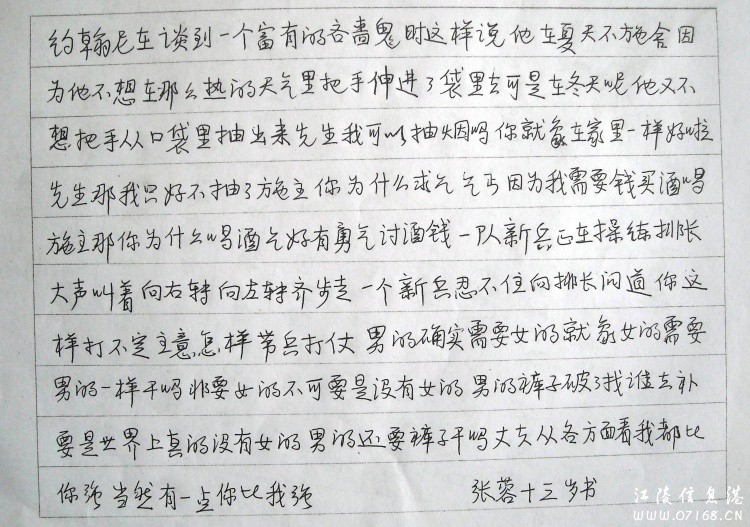 约翰尼在谈到一个富有的吝啬鬼时这样说他在夏天不施舍因
为他不想在那么热的天气里把手伸进了袋里去可是在冬天呢他又不
想把手从口袋里抽出来先生我可以抽烟吗你就象在家里一样好啦
先生那我只好不抽了施主你为什么求气气丐因为我需要钱买酒喝
施主那你为什么喝酒气好有勇气讨酒钱一队新兵正在操练排长
大声叫着向右转向左转齐步走一个新兵忍不住向排长问道你这
样打不定主意怎样带兵打仗男的确实需要女的就象女的需要
男的一样干吗非要女的不可要是没有女的男的裤子破了找谁去补
要是世界上真的没有女的男的还要裤子干吗丈夫从各方面看我都比
你强当然有一点你比我强
张蓉十三岁书
江陵信息港
WWW.07168.CN